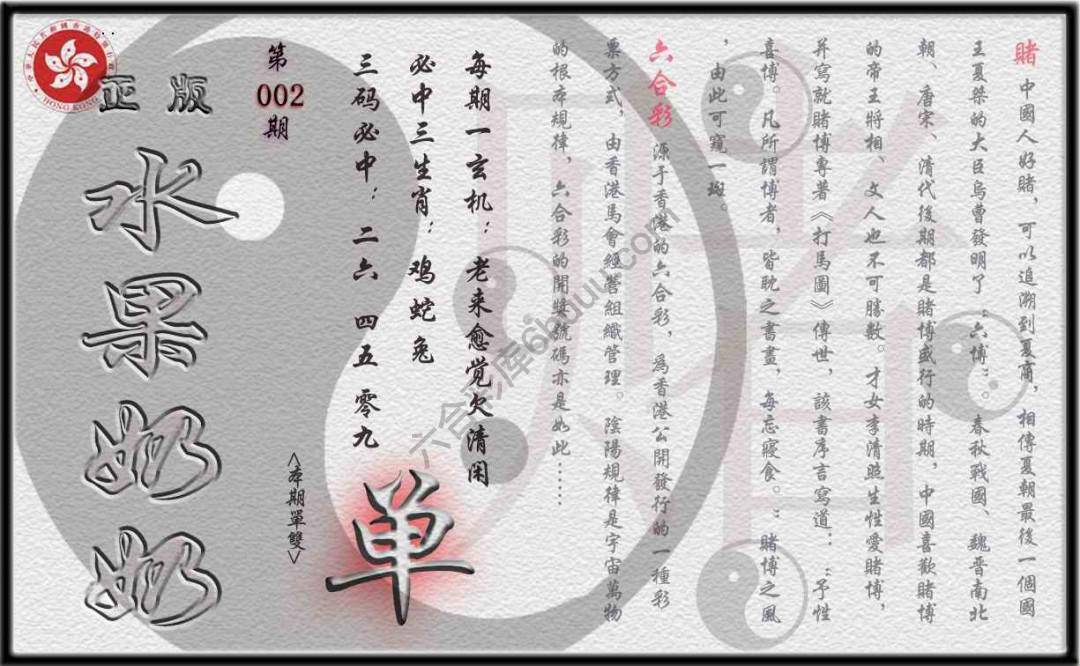 賭 中國人好賭，可以追溯到夏商，相傳夏朝最後一個國
王夏桀的大臣烏曹發明了“六博”。春秋戰國、魏晉南北
朝、唐宋、清代後期都是賭博盛行的時期，中國喜歡賭博
的帝王將相、文人也不可勝數。才女李清照生性愛賭博，
并寫就賭博專著《打馬圖》傳世，該書序言寫道：“予性
喜博。凡所謂博者，皆耽之晝晝，每忘寢食。”賭博之風
，由此可窺一斑。
六合彩 源于香港的六合彩，爲香港公開發行的一種彩
票方式，由香港馬會經營組織管理。陰陽規律是宇宙萬物
的根本規律，六合彩的開獎號碼亦是如此……
每期一玄机：老来愈觉欠清闲
必中三生肖：鸡蛇兔
三码必中：二六 四五 零九
<本期單雙>
单
第
002
期
正版
水果奶奶
HONG KONG
六合彩库66uuu.com